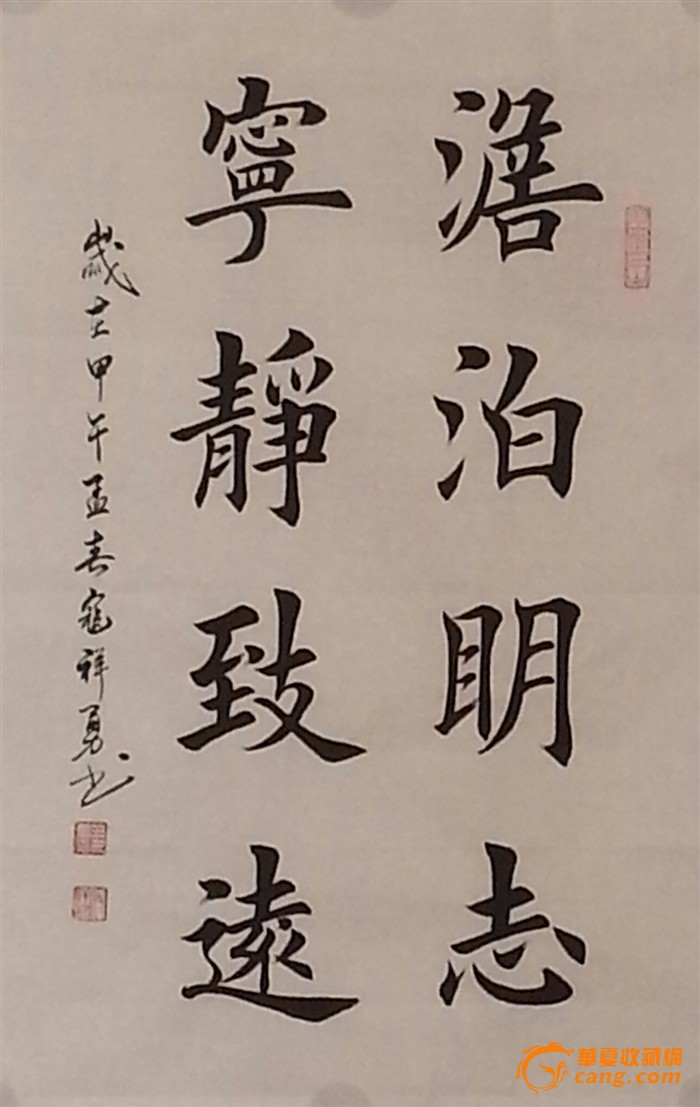 澹泊明志
寧靜致遠
歲在甲午孟春寇祥勇书
華夏收藏網
cang.com